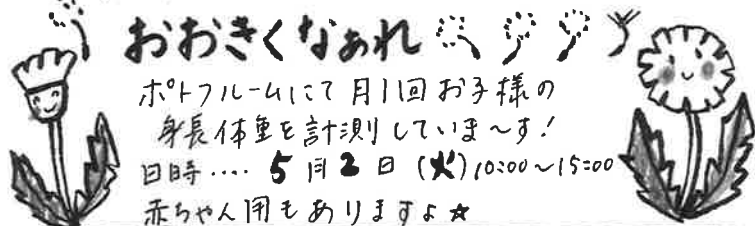 おおきくなあれ
ポトフルームにて月1回お子様の
身長体重を計測していま〜す!
日時‥‥5月2日(火)10:00〜15:00
赤ちゃん用もありますよ★